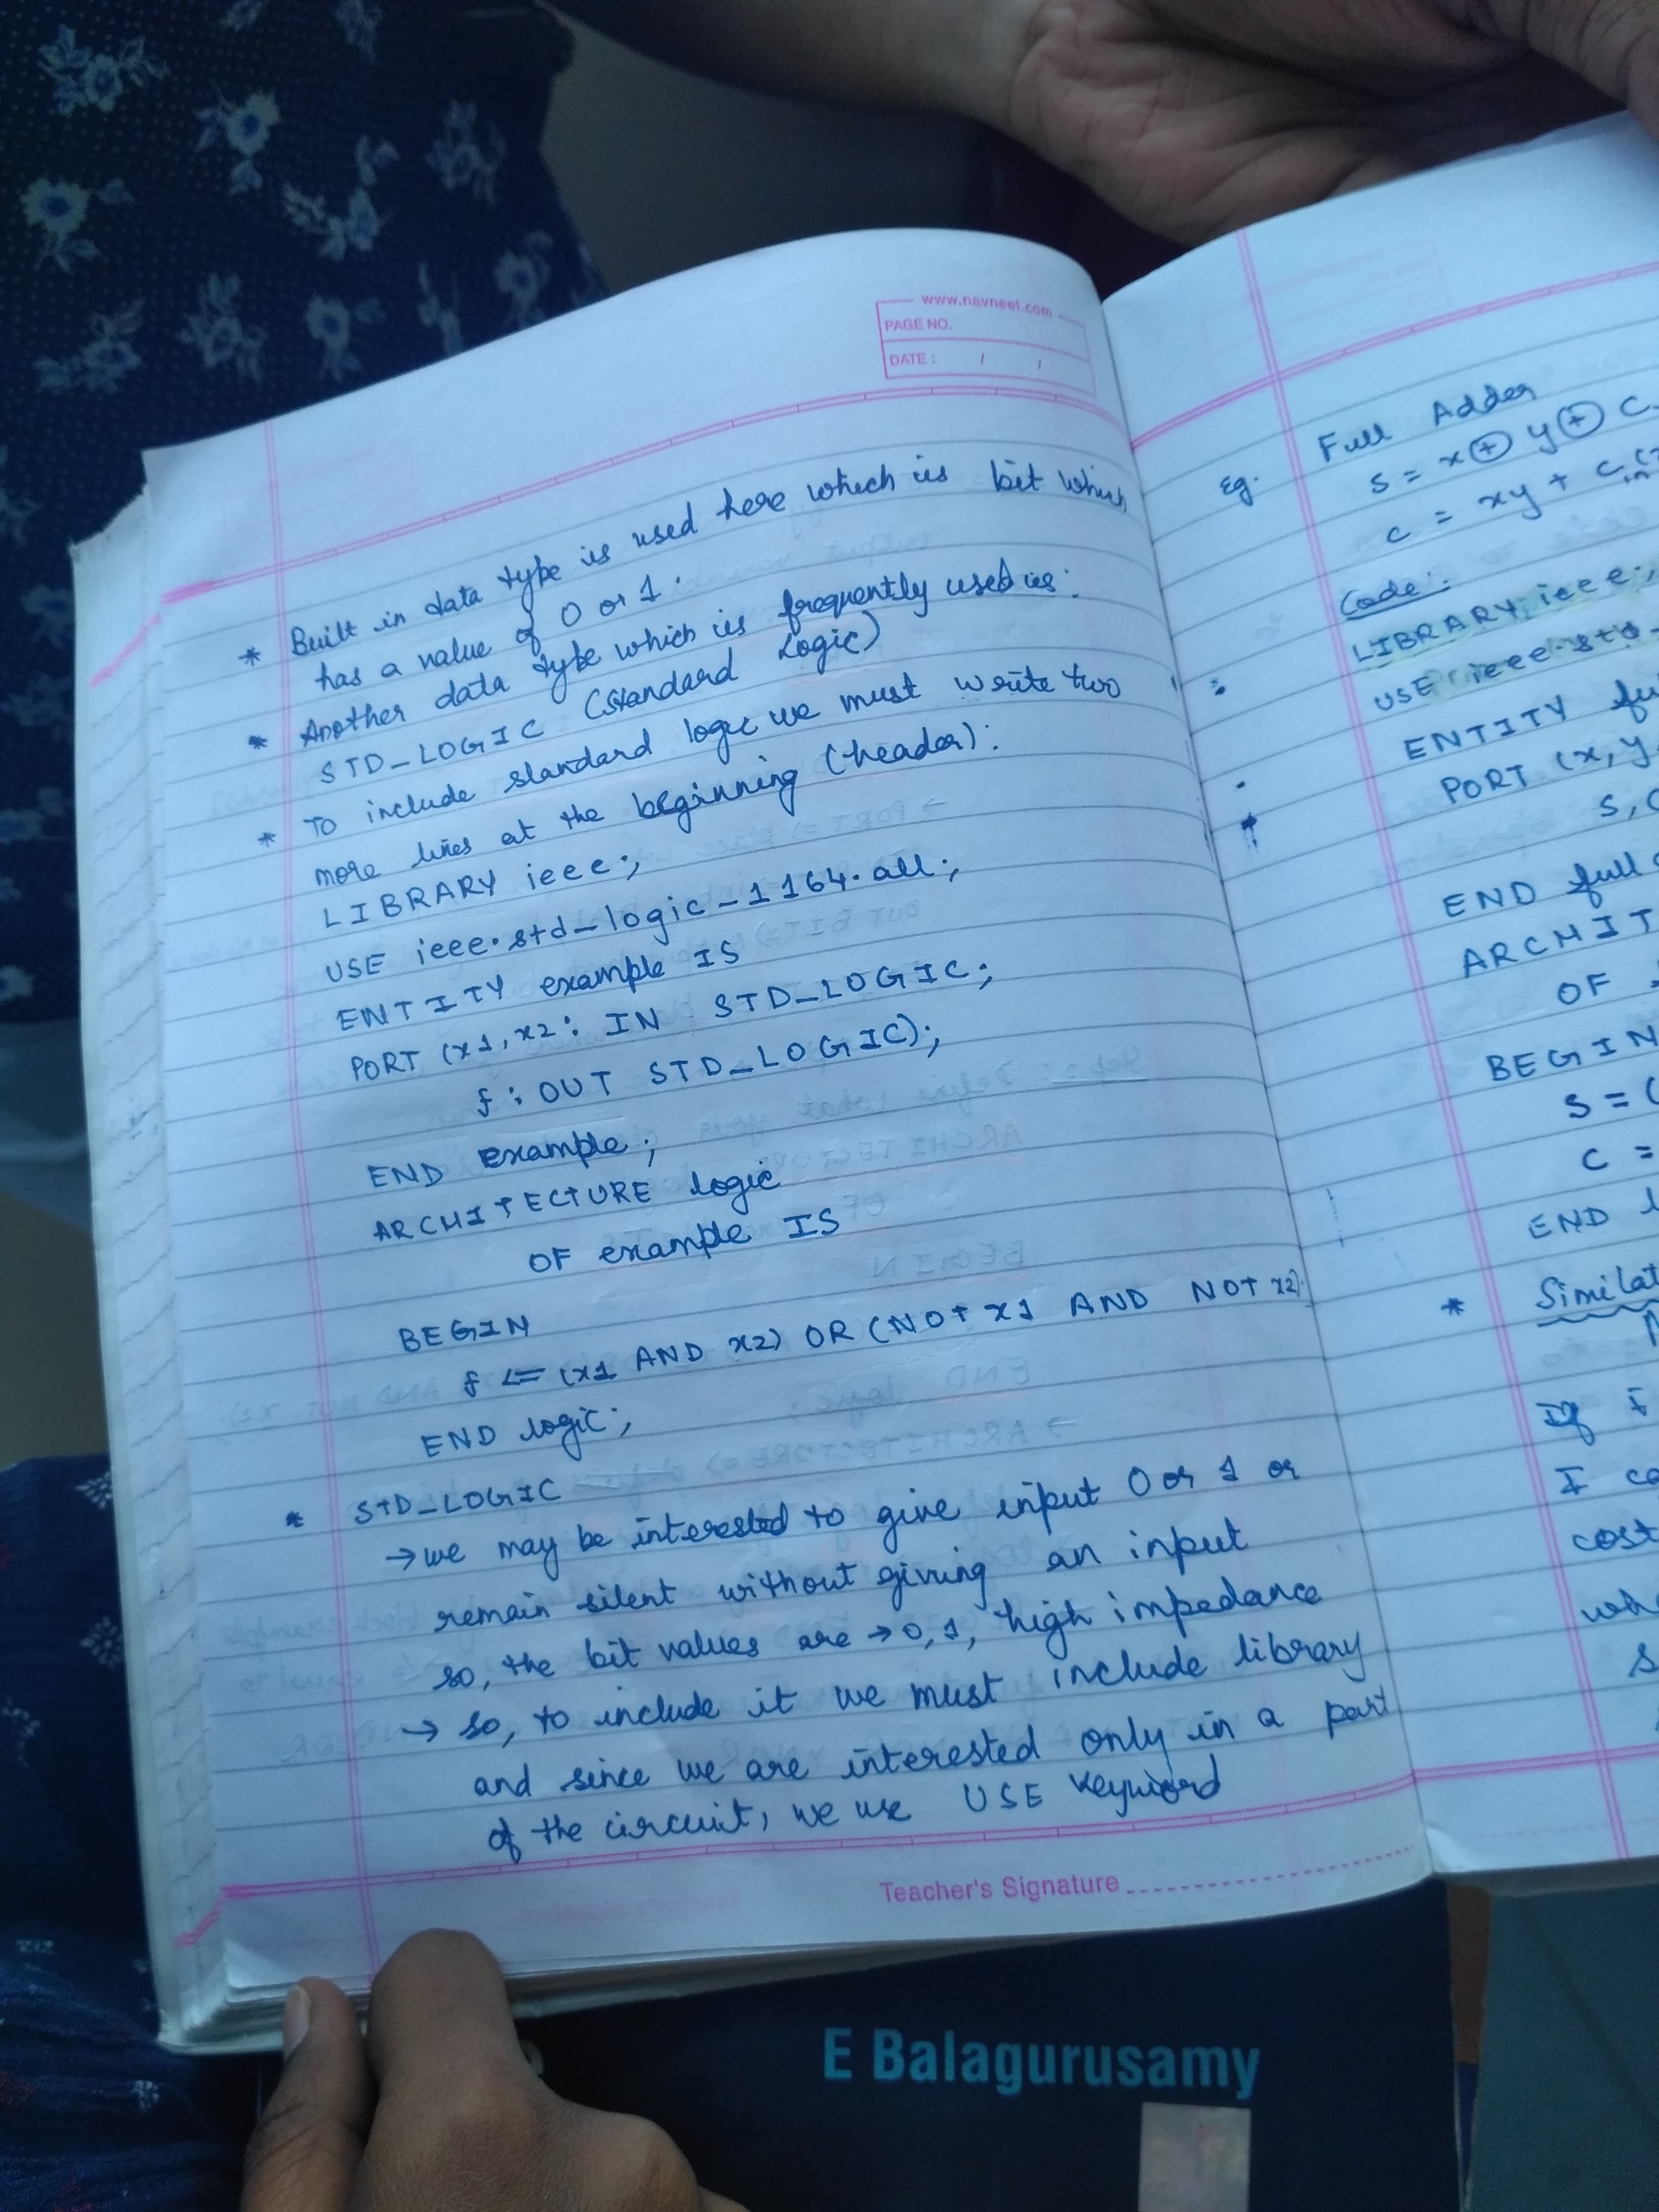 www.navneet.com
PAGE NO.
DATE : / /
* Built in data type is used here which is bit which
has a value of 0 or 1.
* Another data type which is frequently used is:
STD_LOGIC (Standard Logic)
* To include standard logic we must write two
more lines at the beginning (header):
LIBRARY ieee;
USE ieee.std_logic_1164.all;
ENTITY example IS
PORT (x1, x2: IN STD_LOGIC;
f: OUT STD_LOGIC);
END example;
ARCHITECTURE logic
OF example IS
BEGIN
f <= (x1 AND x2) OR (NOT x1 AND NOT x2)
END logic;
* STD_LOGIC
→ we may be interested to give input 0 or 1 or
remain silent without giving an input
so, the bit values are → 0, 1, high impedance
→ so, to include it we must include library
and since we are interested only in a part
of the circuit, we use USE keyword
Teacher's Signature
Eg. Full Adder
s = x ⊕ y ⊕ c
c = xy + cin(
Code:
LIBRARY ieee;
USE ieee.std-
ENTITY fu
PORT (x, y
s, c
END full
ARCHIT
OF
BEGIN
s = (
c =
END l
* Similat
If I
I co
cost
whe
s
E Balagurusamy